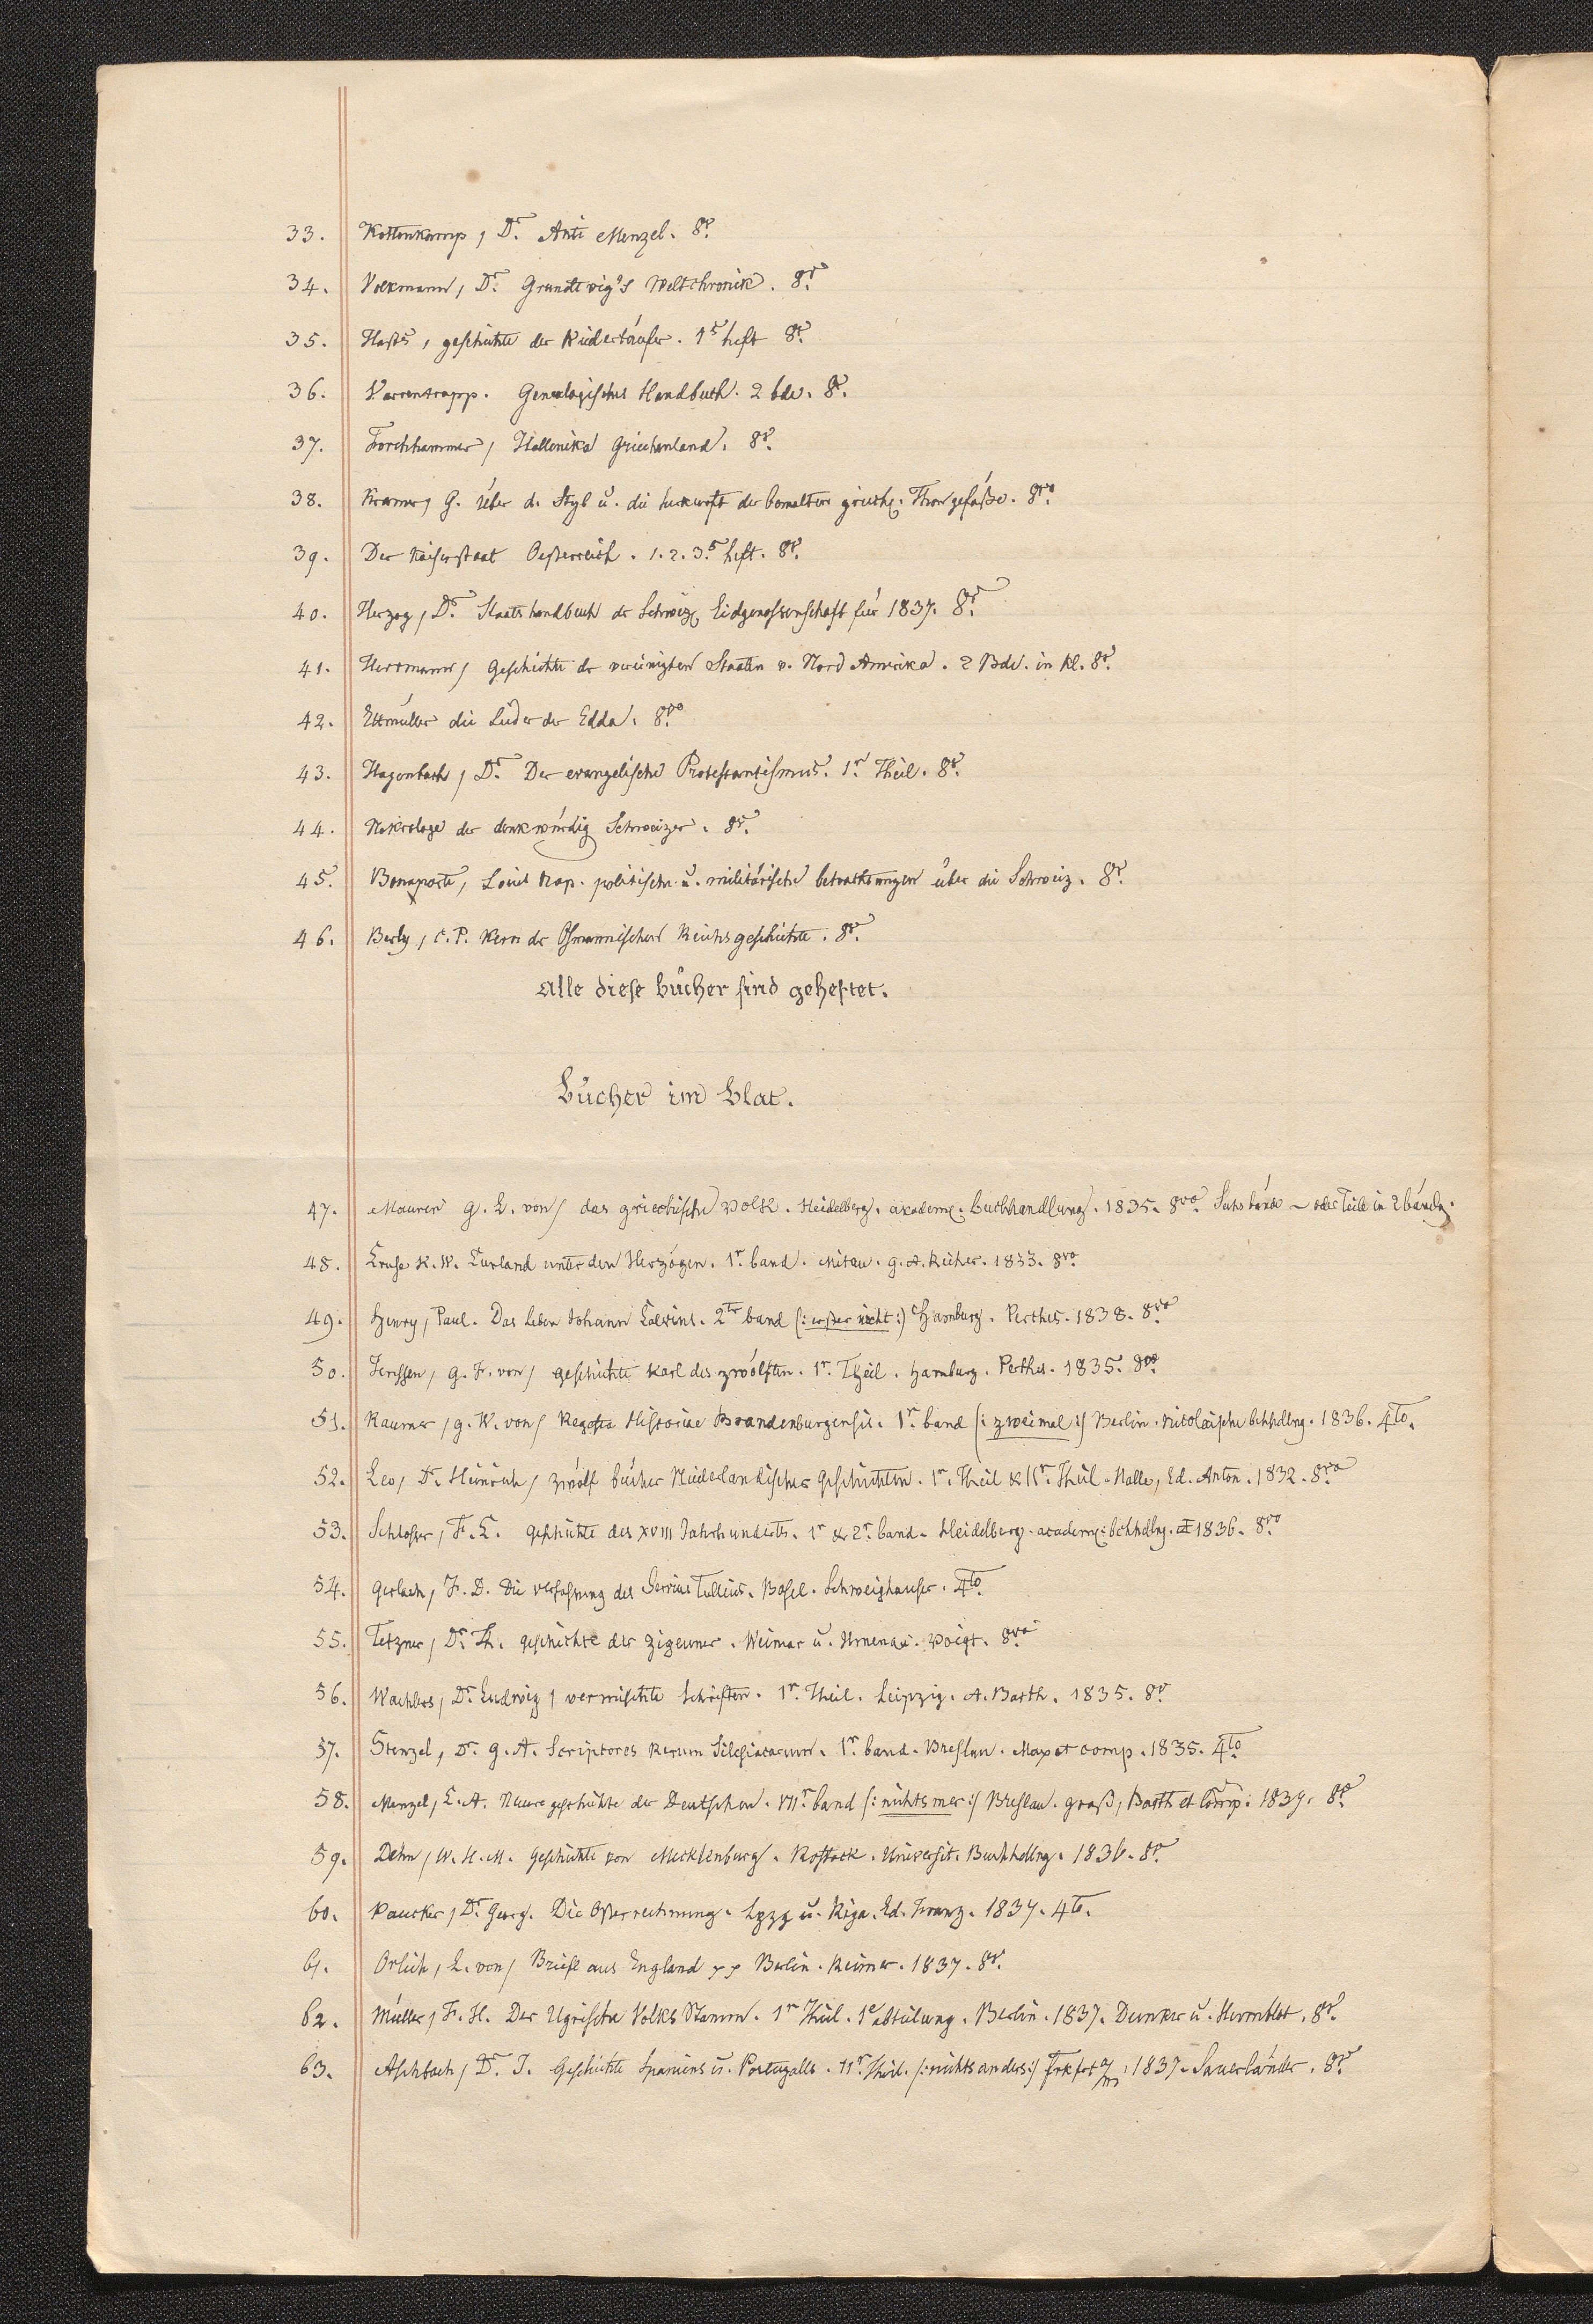 33. Kottenkamp, Dr. Anti Menzel. 8º.
34. Volkmann, Dr. Grundtvig's Weltchronik. 8º.
35. Hasts, geschichte der Wiedertäufer. 1s heft 8º.
36. Varrentrapp. Genealogisches Handbuch. 2 bde. 8º.
37. Forchhammer, Hellenika Griechenland. 8º.
38. Kramer, G. Über d. Styl u. die herkunft der bemalten griech. Thongefäße. 8vo.
39. Der Kaiserstaat Oesterreich. 1. 2. 3.s heft. 8º.
40. Herzog, Dr. Staatshandbuch der Schweiz. Eidgenossenschaft für 1837. 8º.
41. Herrmann, Geschichte der vereinigten Staaten v. Nord Amerika. 2 Bde. in kl. 8º.
42. Ettmüller die Lieder der Edda. 8vo
43. Hagenbach, Dr. Der evangelische Protestantismus. 1r. Theil. 8º.
44. Nekrologe der denkwürdig Schweizer. 8º.
45. Bonaparte, Louis Nap. politische u. militärische betrachtungen über die Schweiz. 8º.
46. Berly, C. P. Kern der Osmanischen Reichsgeschichte. 8º.
Alle diese bücher sind geheftet.
Bücher im blat.
47. Maurer G. L. von, das griechische Volk. Heidelberg. academ. buchhandlung. 1835. 8vo. bände – oder Teile in 2 bänden.
48. Cruse K. W. Curland unter den Herzögen. 1r. band. Mitau. G. A. Reiher. 1833. 8vo
49. Henry, Paul. Das Leben Johann Calvins. 2ter band (: erster nicht :) Hamburg. Perthes. 1838. 8vo
50. G. F. von, geschichte Karl des zwölften. 1r. Theil. Hamburg. Perthes. 1835. 8vo
51. Raumer, G. W. von, Regesta Historiae Brandenburgensis. 1r. band (: zweimal :) Berlin. Nicolaische bchhdlng. 1836. 4to.
52. Leo, Dr. Heinrich, zwölf bücher Niederlandischer Geschichten. 1r. Theil & IIr. Theil. Halle, Ed. Anton. 1832. 8vo
53. Schlosser, F. C. geschichte des XVIII Jahrhunderts. 1r & 2r. band. Heidelberg. academ: bchhdlng. 1836. 8vo
54. Gerlach, F. D. Die verfassung des Servius Tullius. Basel. Schweighauser. 4to.
55. Tetzner, Dr. Th. geschichte der Zigeuner. Weimar u. Ilmenau. Voigt. 8vo
56. Wachlers, Dr. Ludwig, vermischte Schriften. 1r. Theil. Leipzig. A. Barth. 1835. 8º
57. Stenzel, Dr. G. A. Scriptores Rerum Silesiacarum. 1r. band. Breslau. Max et comp. 1835. 4to
58. Menzel, C. A. Neuere geschichte der Deutschen. VIIr. band (: nichts mer :) Breslau. Graß, Barth et Comp. 1837. 8º
59. Dehn, W. H. M. geschichte von Mecklenburg. Rostock. Universit. Buchhdlng. 1836. 8º
60. Paucker, Dr. Georg. Die Osterrechnung. Lpzg u. Riga. Ed. Franz. 1837. 4to.
61. Orlich, L. von, Briefe aus England Berlin. Reimer. 1837. 8º.
62. Müller, F. H. Der Ugrische Volks Stamm. 1r Theil. 1e abteilung. Berlin. 1837. Dunker u. Humblot. 8º
63. Aschbach, Dr. J. Geschichte Spaniens u. Portugalls. 11r. Theil. (: nichts anders :) Frkfrt a/m. 1837. Sauerländer. 8º